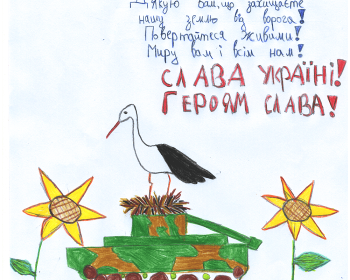 Дякую вам, що захищаєте
нашу землю від ворога!
Повертайтеся живими!
Миру вам і всім нам!
СЛАВА УКРАЇНІ!
ГЕРОЯМ СЛАВА!